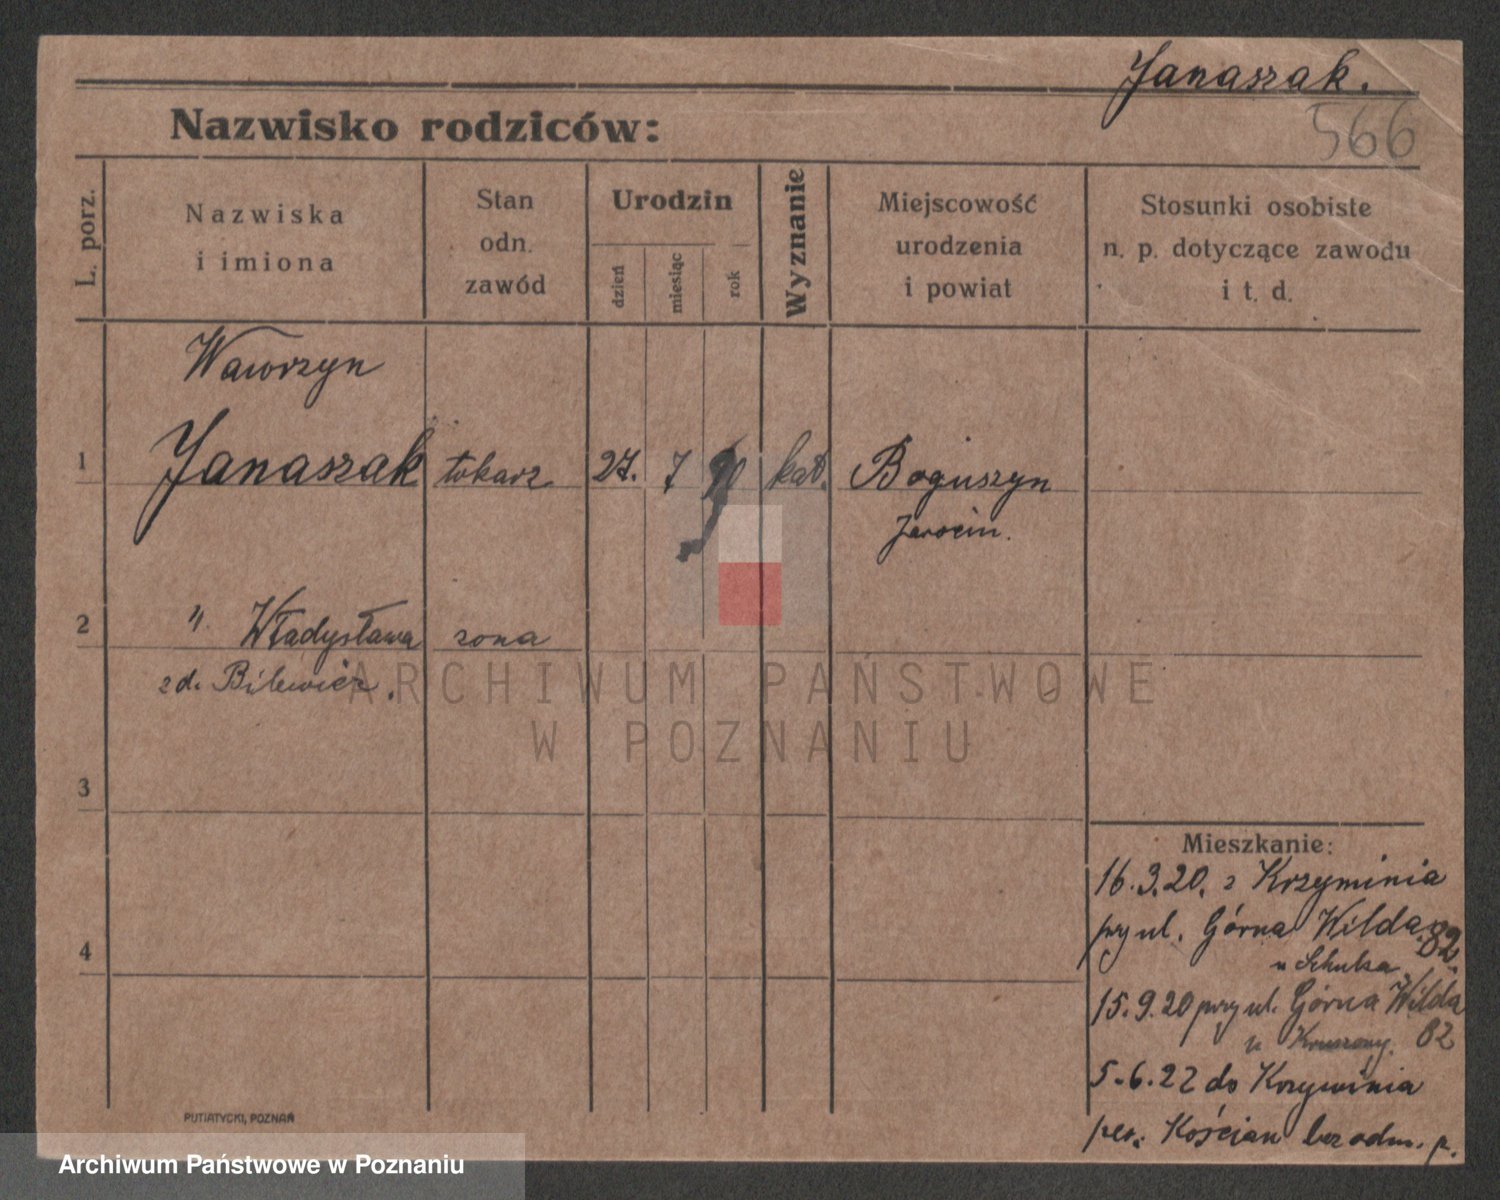 Janaszak.
566
Nazwisko rodziców:
L. porz.
Nazwiska
i imiona
Stan
odn.
zawód
Urodzin
dzień
miesiąc
rok
Wyznanie
Miejscowość
urodzenia
i powiat
Stosunki osobiste
n. p. dotyczące zawodu
i t. d.
Wawrzyn
1 Janaszak tokarz 27. 7 90 kat. Boguszyn
Jarocin.
2 " Władysława zona
zd. Bilewicz.
3
4
Mieszkanie:
16.3.20. z Krzyminia
przy ul. Górna Wilda 82.
u Schulza
15.9.20 przy ul. Górna Wilda
u 82
5.6.22 do Krzywinia
pow. Kościan bez odm. p.
PUTIATYCKI, POZNAŃ
ARCHIWUM PAŃSTWOWE
W POZNANIU
Archiwum Państwowe w Poznaniu